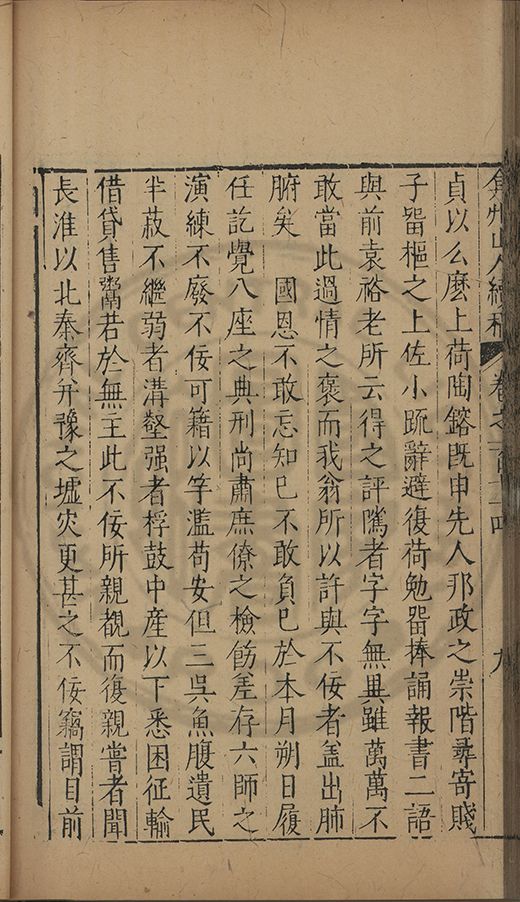 弇州山人續稿 卷之一百二十四 九
貞以么麼上荷陶鎔既申先人邢政之崇階尋寄賤
子畱樞之上佐小䟽辭避復荷勉畱捧誦報書二語
與前袁裕老所云得之評隲者字字無異雖萬萬不
敢當此過情之褒而我翁所以許與不佞者盖出肺
腑矣 國恩不敢忘知巳不敢負巳於本月朔日履
任訖覺八座之典刑尚肅庶僚之檢飭差存六師之
演練不廢不佞可籍以竽濫苟安但三吳魚腹遺民
半菽不繼弱者溝壑强者桴鼓中産以下悉困征輸
借貸售鬻若於無主此不佞所親覩而復親嘗者聞
長淮以北秦齊并豫之墟灾更甚之不佞竊謂目前